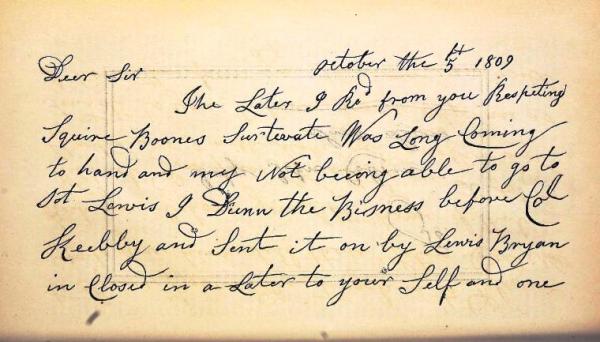 Deer Sir october the 5th 1809
The Later I Rd from you Respeting
Squire Boones Surtivate Was Long Coming
to hand and my Not beeing able to go to
St Lewis I Dunn the Bisness before Col
Keebby and Sent it on by Lewis Bryan
in Closed in a Later to your Self and one